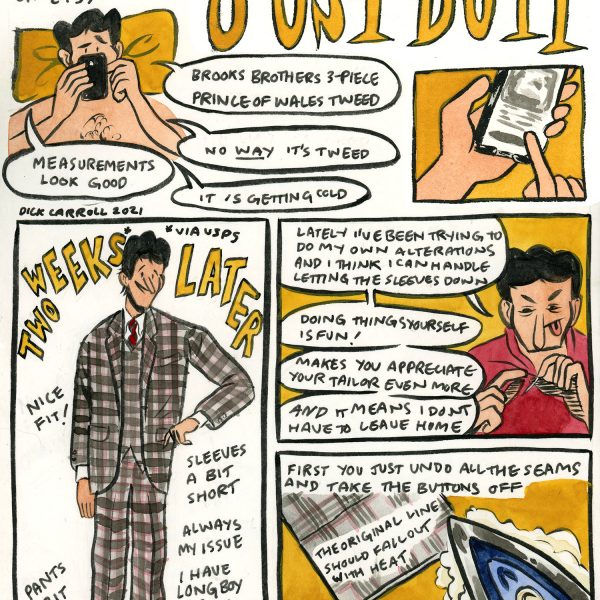 BROOKS BROTHERS 3-PIECE
PRINCE OF WALES TWEED
NO WAY IT'S TWEED
MEASUREMENTS
LOOK GOOD
IT IS GETTING COLD
DICK CARROLL 2021
TWO WEEKS*
LATER
*VIA USPS
NICE
FIT!
SLEEVES
A BIT
SHORT
ALWAYS
MY ISSUE
I HAVE
LONG BOY
PANTS
LATELY I'VE BEEN TRYING TO
DO MY OWN ALTERATIONS
AND I THINK I CAN HANDLE
LETTING THE SLEEVES DOWN
DOING THINGS YOURSELF
IS FUN!
MAKES YOU APPRECIATE
YOUR TAILOR EVEN MORE
AND IT MEANS I DON'T
HAVE TO LEAVE HOME
FIRST YOU JUST UNDO ALL THE SEAMS
AND TAKE THE BUTTONS OFF
THE ORIGINAL LINE
SHOULD FALL OUT
WITH HEAT